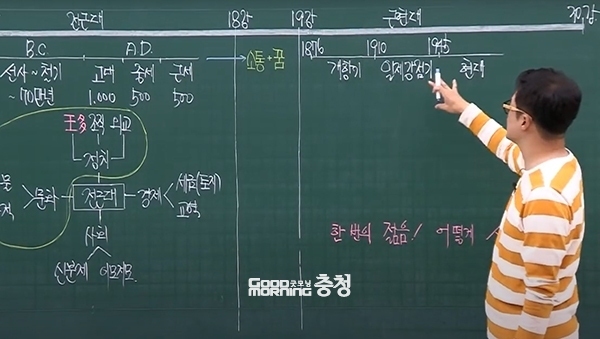 전근대 18강 19강 근현대 20강
B.C. A.D. 소통+꿈 1876 1910 1945
선사~철기 고대 중세 근세 개항기 일제강점기 현대
~70만년 1,000 500 500
王 조직 외교
정치
문화 전근대 경제 세금(토지)
교역
사회
신분제
한 번의 젊음! 어떻게
GOOD MORNING 굿모닝 충청